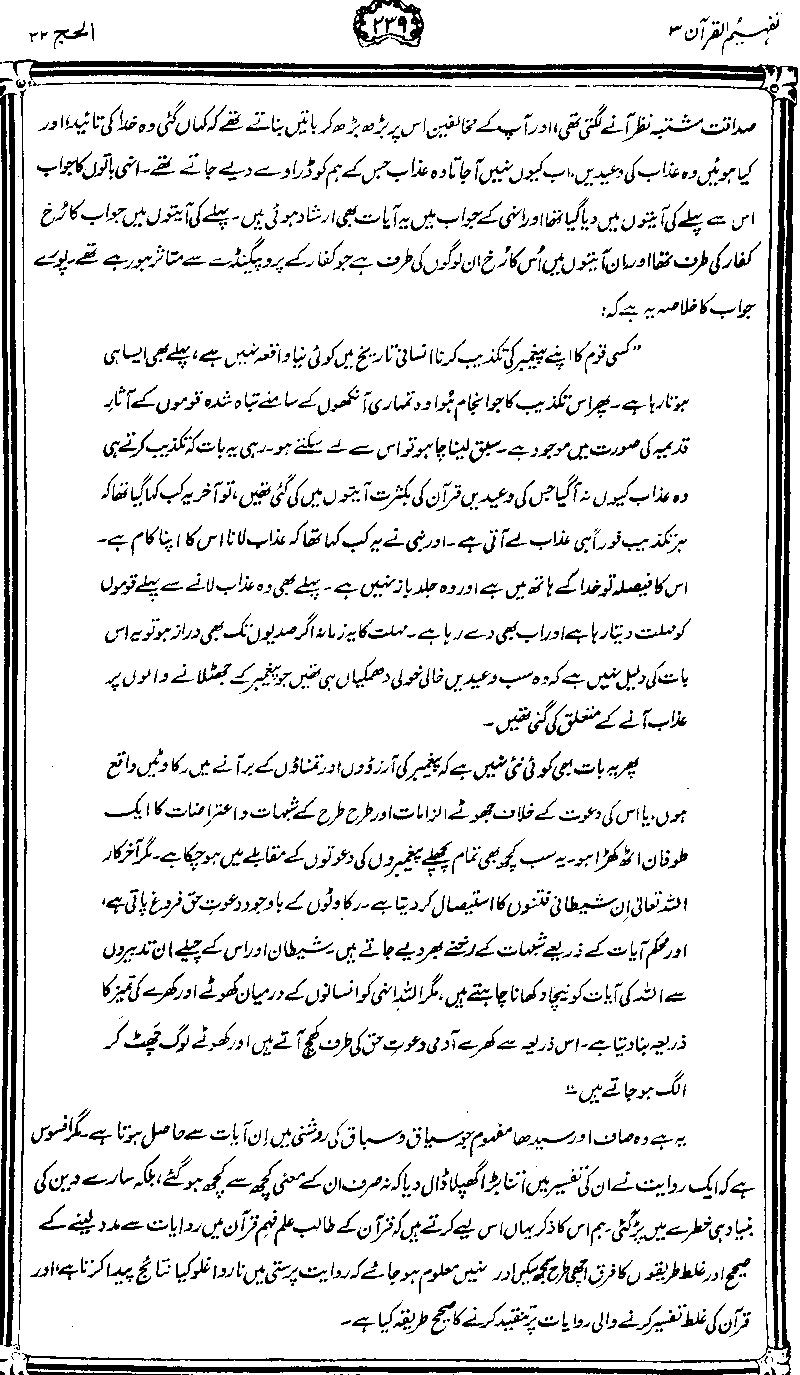 تفہیم القرآن ۳
۲۳۹
الحج ۲۲
صداقت مشتبہ نظر آنے لگتی تھی، اور آپ کے مخالفین اس پر بڑھ بڑھ کر باتیں بناتے تھے کہ کہاں گئی وہ خدا کی تائید، اور
کیا ہوئیں وہ عذاب کی وعیدیں، اب کیوں نہیں آ جاتا وہ عذاب جس کے ہم کو ڈراوے دیے جاتے تھے۔ انہی باتوں کا جواب
اس سے پہلے کی آیتوں میں دیا گیا تھا اور انہی کے جواب میں یہ آیات بھی ارشاد ہوئی ہیں۔ پہلے کی آیتوں میں جواب کا رُخ
کفار کی طرف تھا اور ان آیتوں میں اُس کا رُخ ان لوگوں کی طرف ہے جو کفار کے پروپیگنڈے سے متاثر ہو رہے تھے۔ پورے
جواب کا خلاصہ یہ ہے کہ:
”کسی قوم کا اپنے پیغمبر کی تکذیب کرنا انسانی تاریخ میں کوئی نیا واقعہ نہیں ہے، پہلے بھی ایسا ہی
ہوتا رہا ہے۔ پھر اس تکذیب کا جو انجام ہُوا وہ تمہاری آنکھوں کے سامنے تباہ شدہ قوموں کے آثارِ
قدیمہ کی صورت میں موجود ہے۔ سبق لینا چاہو تو اس سے لے سکتے ہو۔ رہی یہ بات کہ تکذیب کرتے ہی
وہ عذاب کیوں نہ آگیا جس کی وعیدیں قرآن کی بکثرت آیتوں میں کی گئی تھیں، تو آخر یہ کب کہا گیا تھا کہ
ہر تکذیب فوراً ہی عذاب لے آتی ہے۔ اور نبی نے یہ کب کہا تھا کہ عذاب لانا اس کا اپنا کام ہے۔
اس کا فیصلہ تو خدا کے ہاتھ میں ہے اور وہ جلد باز نہیں ہے۔ پہلے بھی وہ عذاب لانے سے پہلے قوموں
کو مہلت دیتا رہا ہے اور اب بھی دے رہا ہے۔ مہلت کا یہ زمانہ اگر صدیوں تک بھی دراز ہو تو یہ اس
بات کی دلیل نہیں ہے کہ وہ سب وعیدیں خالی خولی دھمکیاں ہی تھیں جو پیغمبر کے جھٹلانے والوں پر
عذاب آنے کے متعلق کی گئی تھیں۔
پھر یہ بات بھی کوئی نئی نہیں ہے کہ پیغمبر کی آرزوؤں اور تمناؤں کے بر آنے میں رکاوٹیں واقع
ہوں، یا اس کی دعوت کے خلاف جھوٹے الزامات اور طرح طرح کے شبہات و اعتراضات کا ایک
طوفان اٹھ کھڑا ہو۔ یہ سب کچھ بھی تمام پچھلے پیغمبروں کی دعوتوں کے مقابلے میں ہو چکا ہے۔ مگر آخر کار
اللہ تعالیٰ اِن شیطانی فتنوں کا استیصال کر دیتا ہے۔ رکاوٹوں کے باوجود دعوتِ حق فروغ پاتی ہے،
اور محکم آیات کے ذریعے شبہات کے رخنے بھر دیے جاتے ہیں۔ شیطان اور اس کے چیلے ان تدبیروں
سے اللہ کی آیات کو نیچا دکھانا چاہتے ہیں، مگر اللہ انہی کو انسانوں کے درمیان کھوٹے اور کھرے کی تمیز کا
ذریعہ بنا دیتا ہے۔ اس ذریعہ سے کھرے آدمی دعوتِ حق کی طرف کھچ آتے ہیں اور کھوٹے لوگ چھٹ کر
الگ ہو جاتے ہیں۔“
یہ ہے وہ صاف اور سیدھا مفہوم جو سیاق و سباق کی روشنی میں اِن آیات سے حاصل ہوتا ہے۔ مگر افسوس
ہے کہ ایک روایت نے ان کی تفسیر میں اتنا بڑا گھپلا ڈال دیا کہ نہ صرف ان کے معنی کچھ سے کچھ ہو گئے، بلکہ سارے دین کی
بنیاد ہی خطرے میں پڑ گئی۔ ہم اس کا ذکر یہاں اس لیے کرتے ہیں کہ قرآن کے طالب علم فہمِ قرآن میں روایات سے مدد لینے کے
صحیح اور غلط طریقوں کا فرق اچھی طرح سمجھ سکیں اور انہیں معلوم ہو جائے کہ روایت پرستی میں ناروا غلو کیا نتائج پیدا کرتا ہے، اور
قرآن کی غلط تفسیر کرنے والی روایات پر تنقید کرنے کا صحیح طریقہ کیا ہے۔